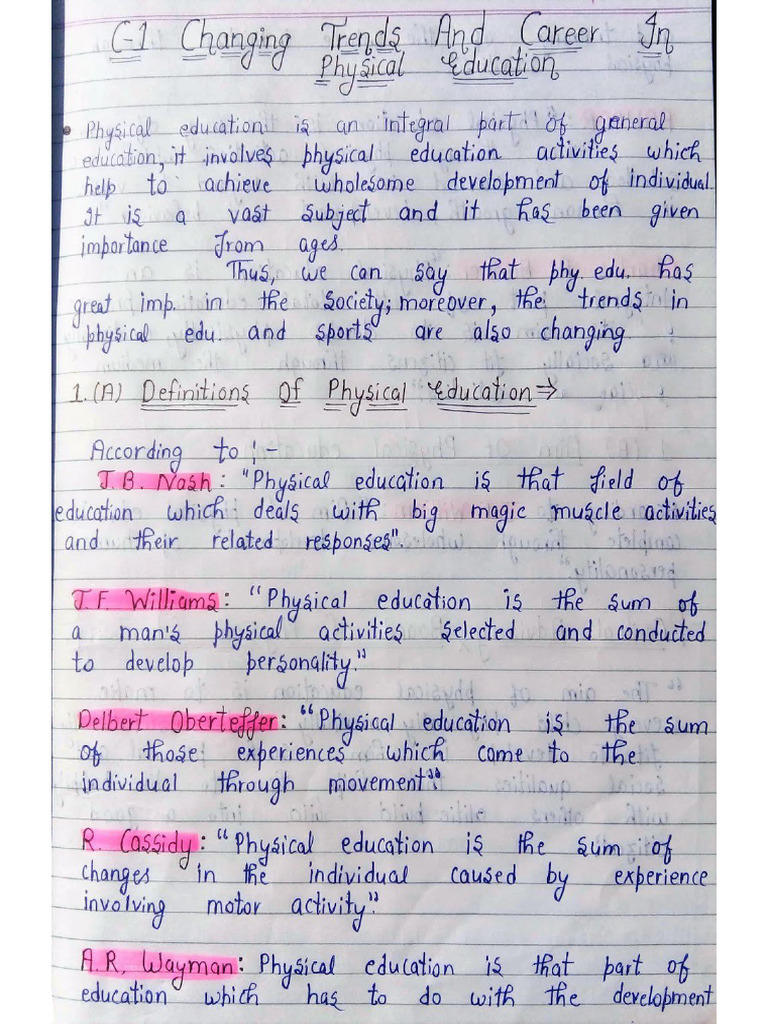 C-1 Changing Trends And Career In
Physical Education
• Physical education is an integral part of general
education, it involves physical education activities which
help to achieve wholesome development of individual.
It is a vast subject and it has been given
importance from ages.
Thus, we can say that phy. edu. has
great imp. in the society; moreover, the trends in
physical edu. and sports are also changing.
1. (A) Definitions Of Physical Education ⇒
According to :-
J. B. Nash : "Physical education is that field of
education which deals with big magic muscle activities
and their related responses".
J.F. Williams : "Physical education is the sum of
a man's physical activities selected and conducted
to develop personality."
Delbert Oberteffer : "Physical education is the sum
of those experiences which come to the
individual through movement."
R. Cassidy : "Physical education is the sum of
changes in the individual caused by experience
involving motor activity".
A.R. Wayman : Physical education is that part of
education which has to do with the development